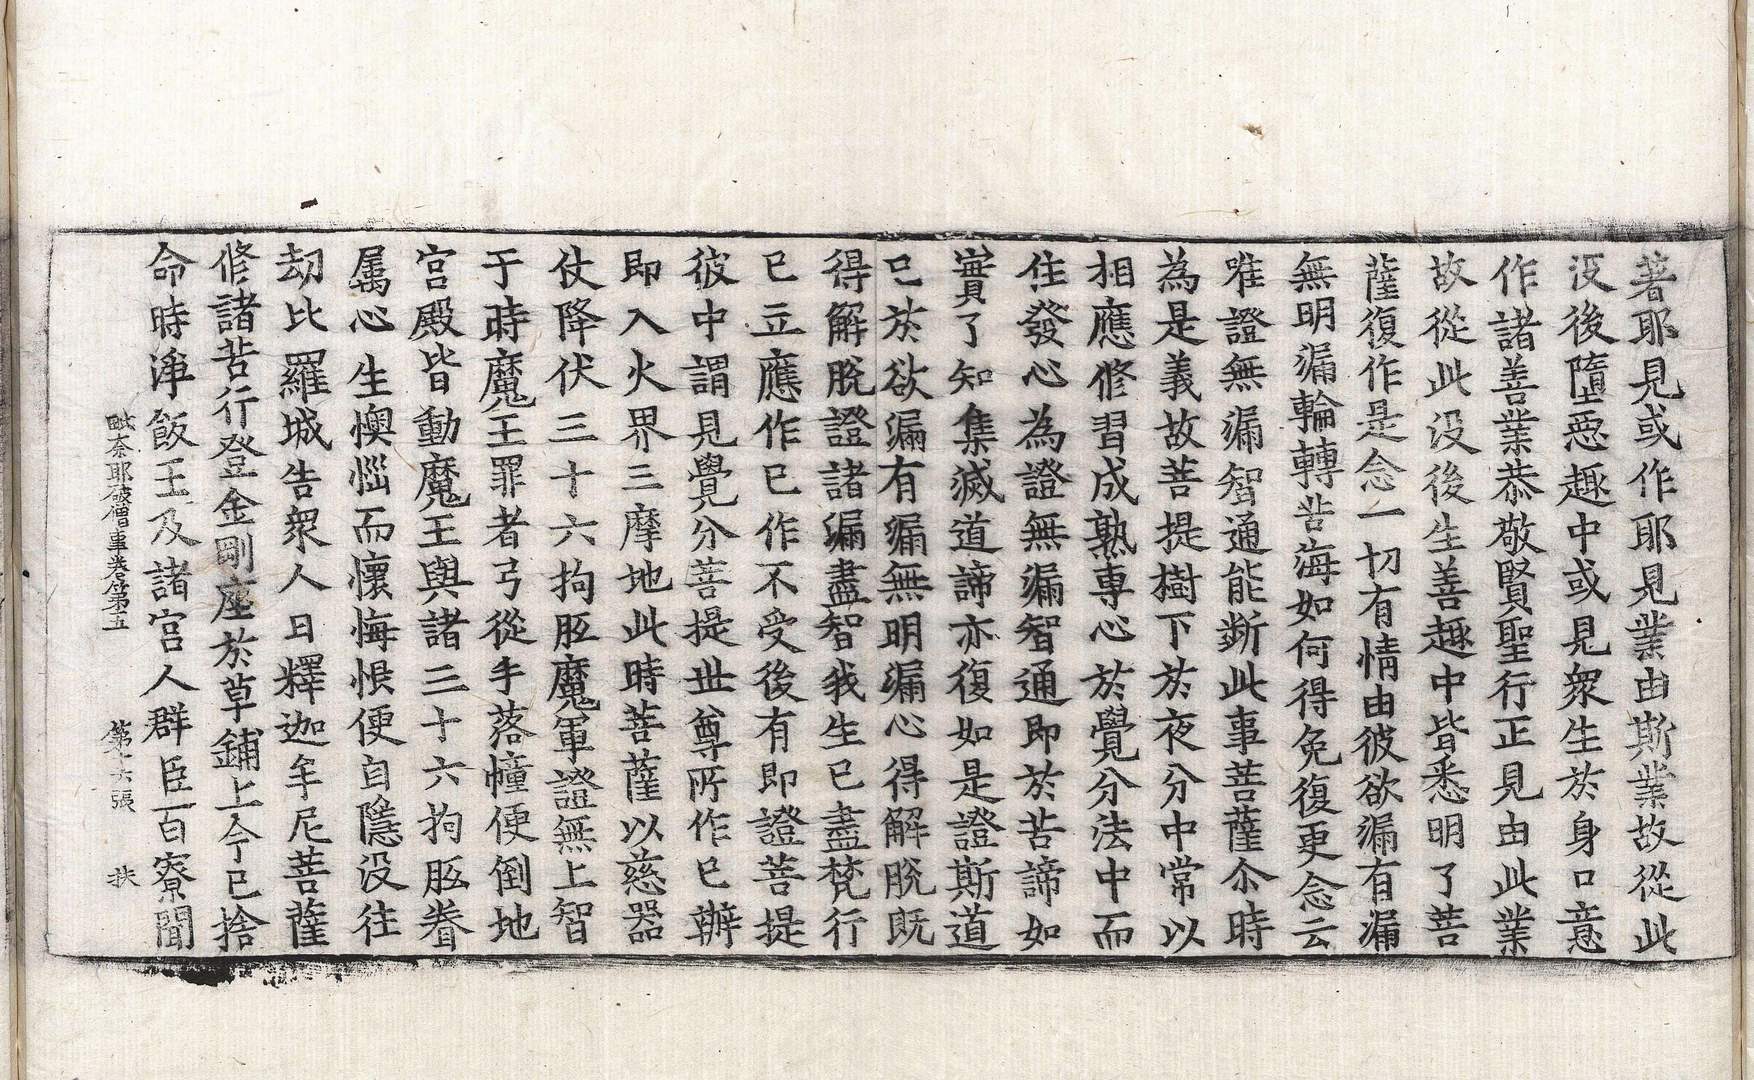 著耶見或作耶見業由斯業故從此
沒後墮惡趣中或見衆生於身口意
作諸善業恭敬賢聖行正見由此業
故從此沒後生善趣中皆悉明了菩
薩復作是念一切有情由彼欲漏有漏
無明漏輪轉苦海如何得免復更念云
唯證無漏智通能斷此事菩薩尒時
為是義故菩提樹下於夜分中常以
相應修習成熟專心於覺分法中而
住發心為證無漏智通即於苦諦如
實了知集滅道諦亦復如是證斯道
已於欲漏有漏無明漏心得解脫既
得解脫證諸漏盡智我生已盡梵行
已立應作已作不受後有即證菩提
彼中謂見覺分菩提世尊所作已辦
即入火界三摩地此時菩薩以慈器
仗降伏三十六拘胝魔軍證無上智
于時魔王罪者弓從手落幢便倒地
宮殿皆動魔王與諸三十六拘胝眷
屬心生懊惱而懷悔恨便自隱沒往
劫比羅城告衆人曰釋迦牟尼菩薩
修諸苦行登金剛座於草鋪上今已捨
命時淨飯王及諸宮人群臣百寮聞
毗奈耶破僧事卷第五 第十六張 扶